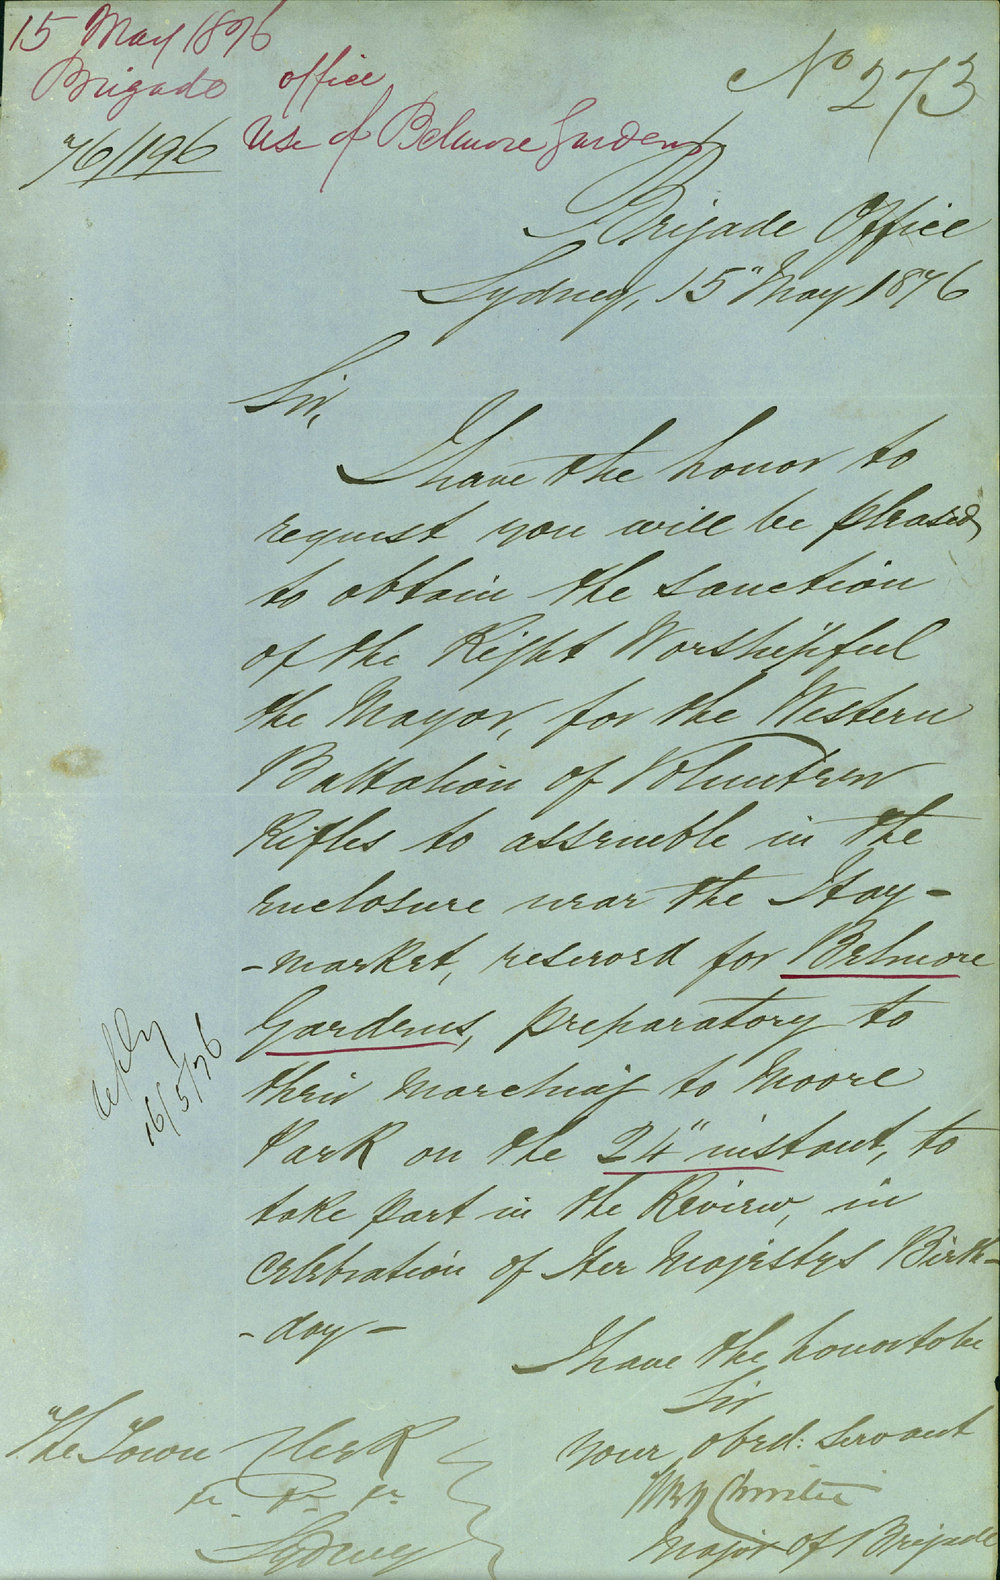 15 May 1876
Brigade office
No 273
76/196 Use of Belmore Gardens
Brigade Office
Sydney, 15" May 1876
Sir,
I have the honor to
request you will be pleased
to obtain the sanction
of the Right Worshipful
the Mayor, for the Western
Battalion of Volunteer
Rifles to assemble in the
enclosure near the Hay-
-market, reserved for Belmore
Gardens, preparatory to
their marching to Moore
Park on the 24" instant, to
take part in the Review, in
celebration of Her Majestys Birth-
-day-
reply
16/5/76
I have the honor to be
Sir
your obed: servant
Christie
Major of Brigade
The Town Clerk
&c. &c. &c.
Sydney